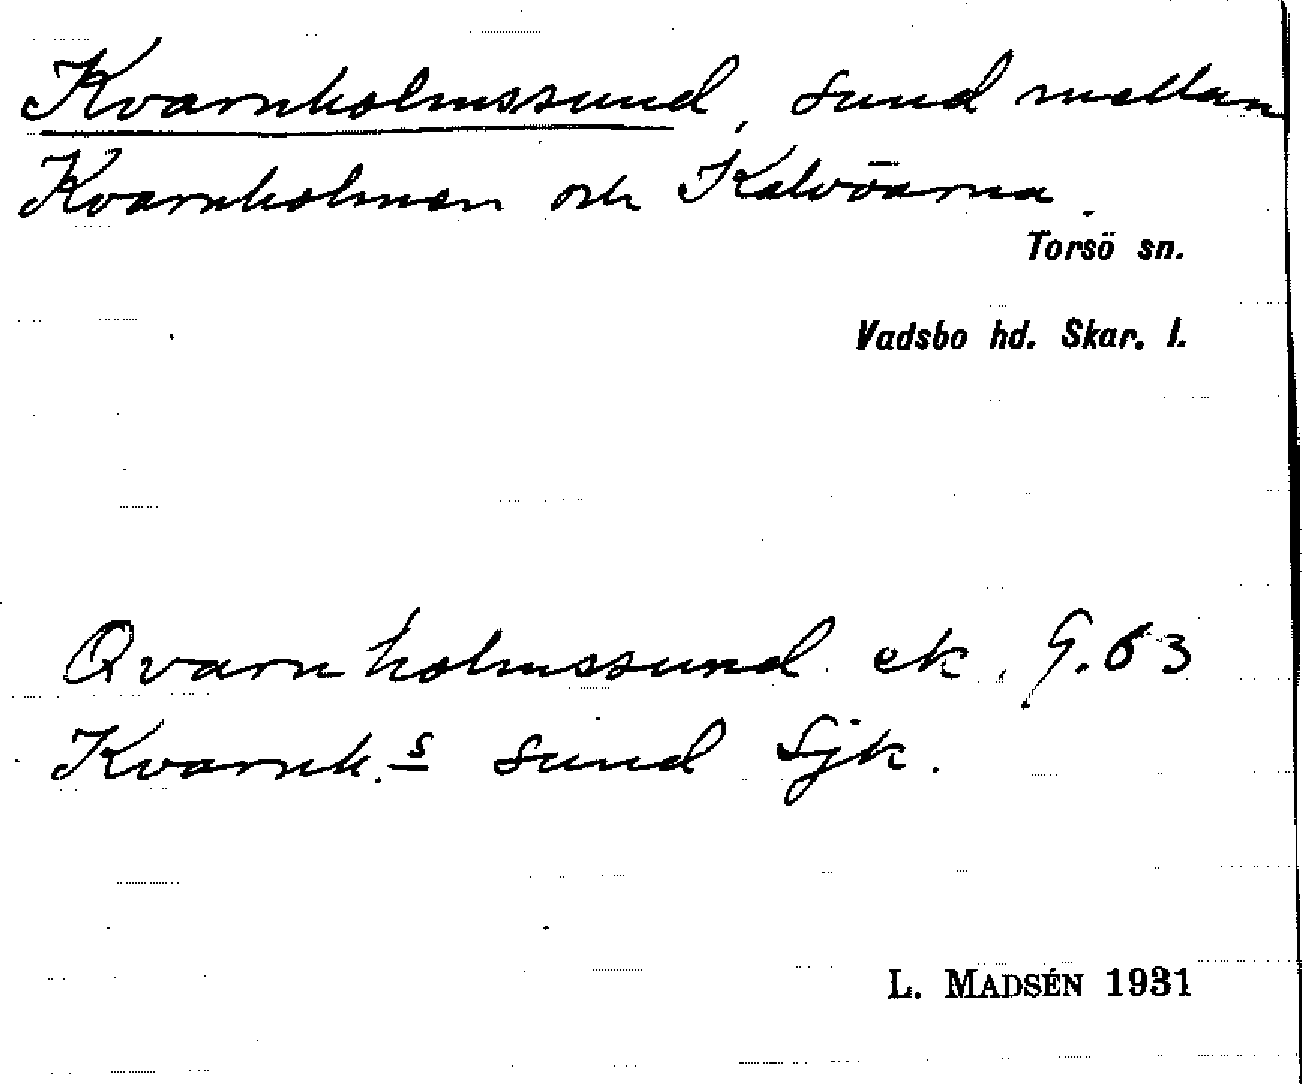 Kvarnholmssund, sund mellan
Kvarnholmen och Kalvöarna.
Torsö sn.
Vadsbo hd. Skar. l.
Qvarnholmssund ek. 9.63
Kvarnh.s sund Sjk.
L. MADSÉN 1931